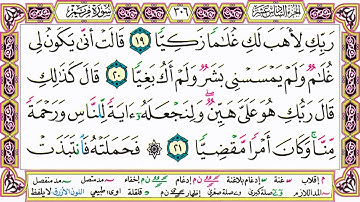 الجزء السادس عشر ٣٠٦ سورة مريم
رَبِّكِ لِأَهَبَ لَكِ غُلَٰمًا زَكِيًّا ١٩ قَالَتْ أَنَّىٰ يَكُونُ لِى
غُلَٰمٌ وَلَمْ يَمْسَسْنِى بَشَرٌ وَلَمْ أَكُ بَغِيًّا ٢٠ قَالَ كَذَٰلِكِ
قَالَ رَبُّكِ هُوَ عَلَىَّ هَيِّنٌ ۖ وَلِنَجْعَلَهُۥٓ ءَايَةً لِّلنَّاسِ وَرَحْمَةً
مِّنَّا ۚ وَكَانَ أَمْرًا مَّقْضِيًّا ٢١ ۞ فَحَمَلَتْهُ فَٱنتَبَذَتْ